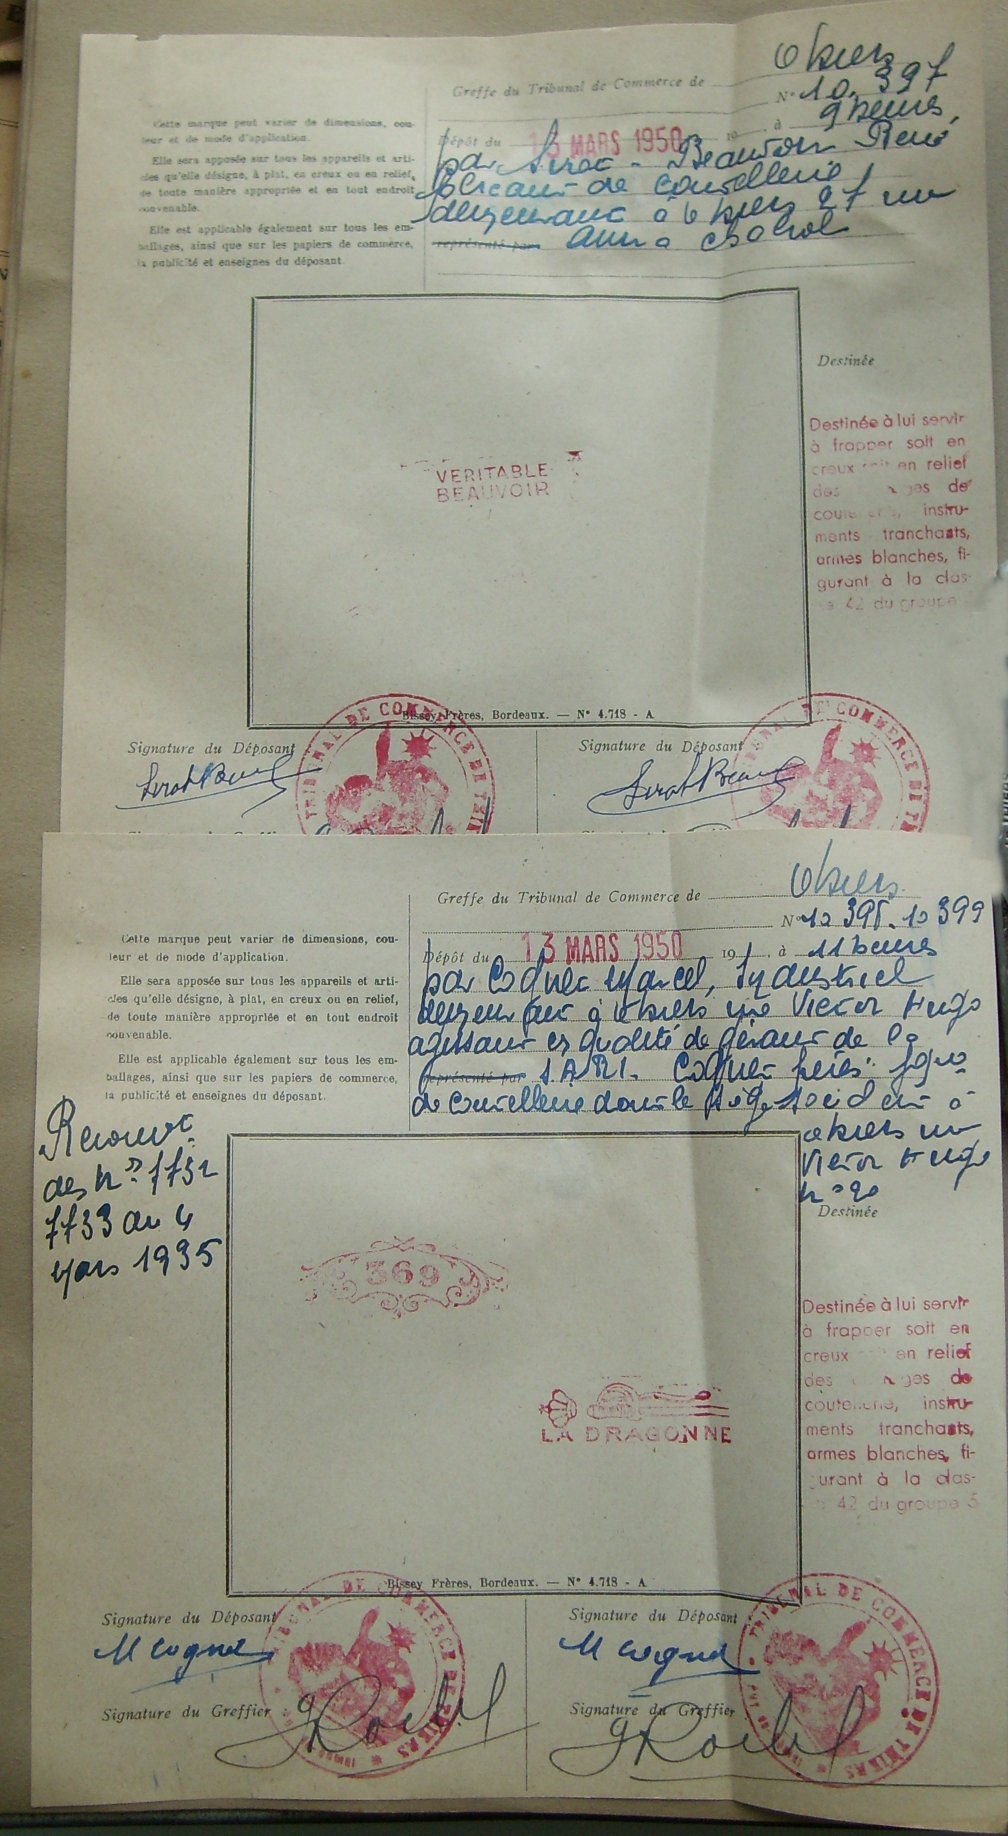 Greffe du Tribunal de Commerce de Thiers
N° 10.397
Cette marque peut varier de dimensions, cou-
leur et de mode d'application.
Elle sera apposée sur tous les appareils et arti-
cles qu'elle désigne, à plat, en creux ou en relief,
de toute manière appropriée et en tout endroit
convenable.
Elle est applicable également sur tous les em-
ballages, ainsi que sur les papiers de commerce,
la publicité et enseignes du déposant.
Dépôt du 13 MARS 1950 19 à 9 heures,
par René
fabricant de coutellerie
demeurant à Thiers 27 rue
représenté par Anna Chabrol
Destinée
VERITABLE
BEAUVOIR
Destinée à lui servir
à frapper soit en
creux soit en relief
des de
coutellerie, instru-
ments tranchants,
armes blanches, fi-
gurant à la clas-
42 du groupe
Bissey Frères, Bordeaux. — N° 4.718 - A
Signature du Déposant
Signature du Déposant
TRIBUNAL DE COMMERCE DE THIERS
TRIBUNAL DE COMMERCE DE THIERS
Greffe du Tribunal de Commerce de Thiers
N° 10 398. 10 399
Cette marque peut varier de dimensions, cou-
leur et de mode d'application.
Elle sera apposée sur tous les appareils et arti-
cles qu'elle désigne, à plat, en creux ou en relief,
de toute manière appropriée et en tout endroit
convenable.
Elle est applicable également sur tous les em-
ballages, ainsi que sur les papiers de commerce,
la publicité et enseignes du déposant.
Dépôt du 13 MARS 1950 19 à 11 heures
par Cognet Marcel, Industriel
demeurant à Thiers rue Victor Hugo
agissant es qualité de gérant de la
représenté par S.A.R.L. Cognet frères
de coutellerie dont le siège social est à
Thiers rue
Victor Hugo
n° 20
Destinée
Renouvt
des nos 7732
7733 du 4
Mars 1935
369
LA DRAGONNE
Destinée à lui servir
à frapper soit en
creux soit en relief
des de
coutellerie, instru-
ments tranchants,
armes blanches, fi-
gurant à la clas-
42 du groupe 5
Bissey Frères, Bordeaux. — N° 4.718 - A
Signature du Déposant
M Cognet
Signature du Déposant
M Cognet
Signature du Greffier
Signature du Greffier
TRIBUNAL DE COMMERCE DE THIERS
TRIBUNAL DE COMMERCE DE THIERS